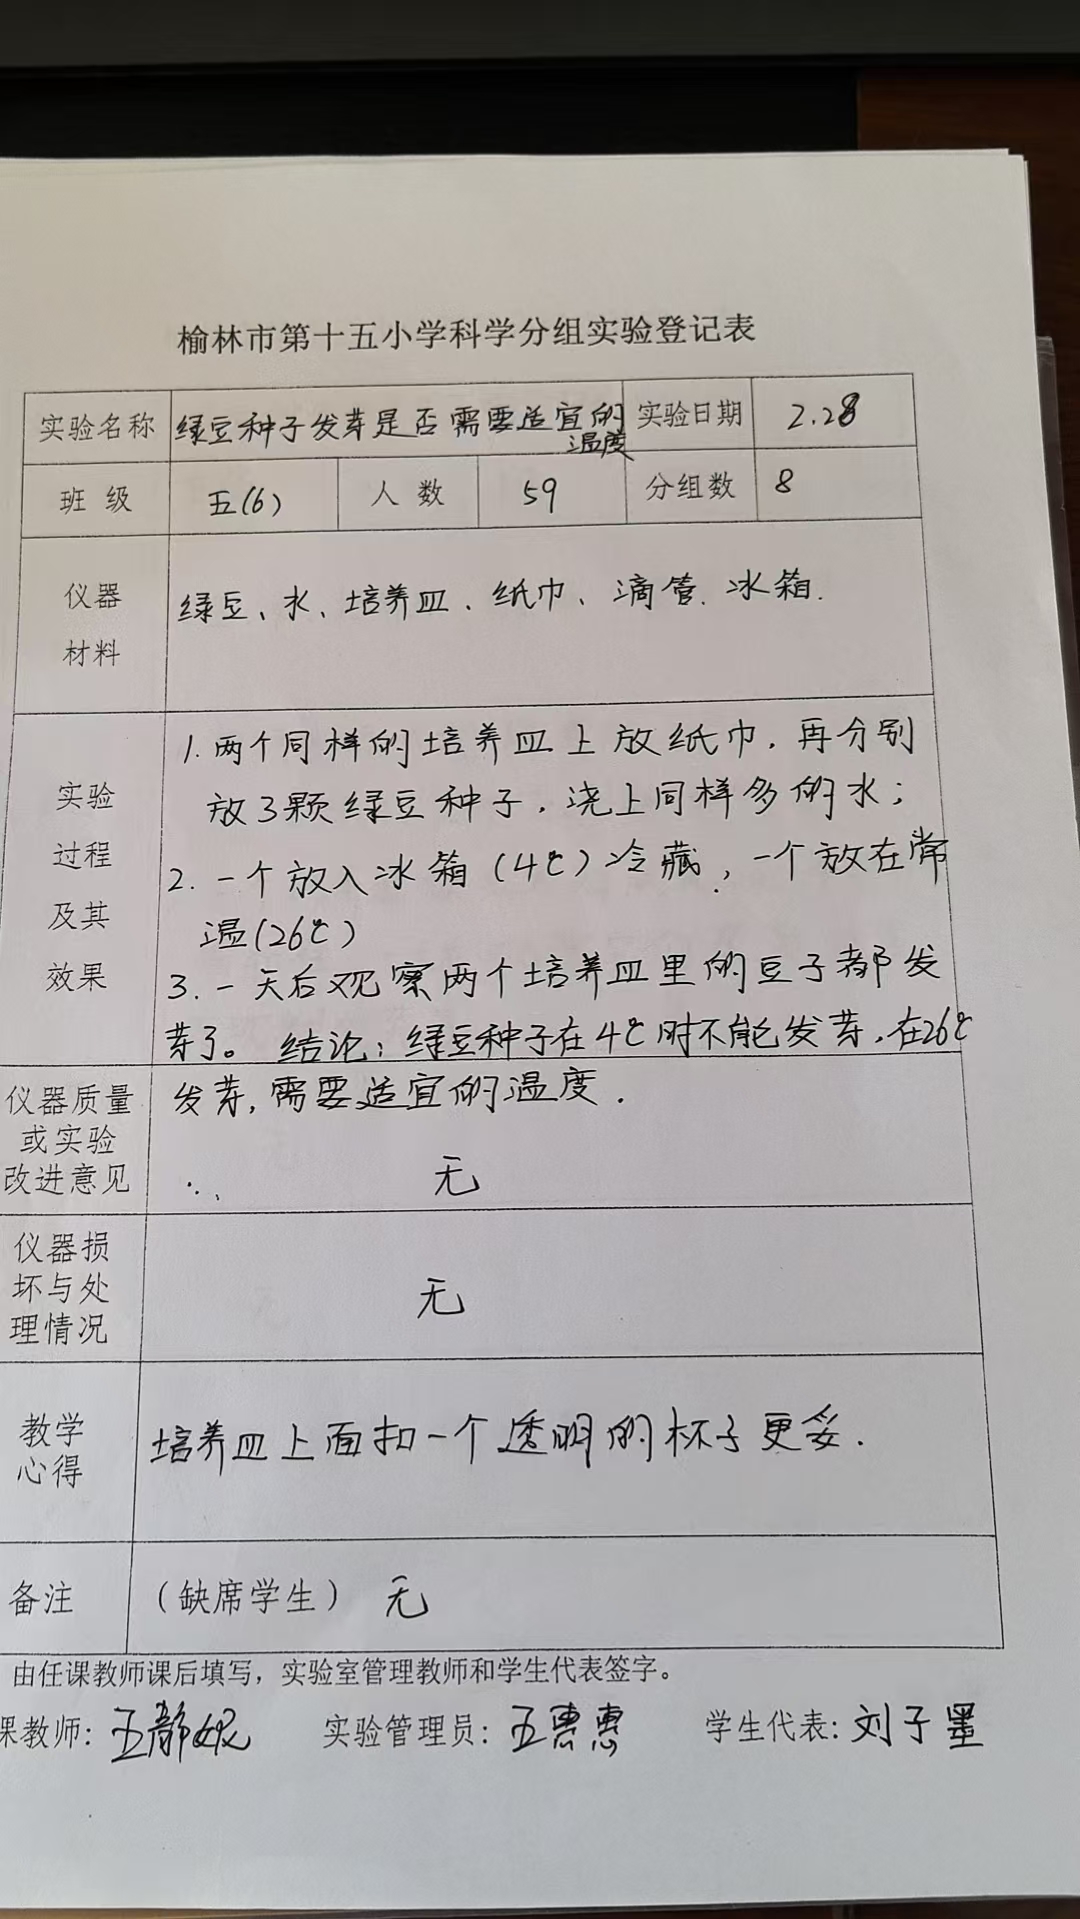 榆林市第十五小学科学分组实验登记表
实验名称 绿豆种子发芽是否需要适宜的温度 实验日期 2.28
班 级 五(6) 人 数 59 分组数 8
仪器
材料
绿豆、水、培养皿、纸巾、滴管、冰箱.
实验
过程
及其
效果
1.两个同样的培养皿上放纸巾，再分别
放3颗绿豆种子，浇上同样多的水；
2.一个放入冰箱(4℃)冷藏，一个放在常
温(26℃)
3.一天后观察两个培养皿里的豆子都发
芽了。结论：绿豆种子在4℃时不能发芽，在26℃
发芽，需要适宜的温度.
仪器质量
或实验
改进意见
无
仪器损
坏与处
理情况
无
教学
心得
培养皿上面扣一个透明的杯子更妥.
备注 （缺席学生） 无
由任课教师课后填写，实验室管理教师和学生代表签字。
课教师: 王静妮 实验管理员: 王惠惠 学生代表: 刘子墨